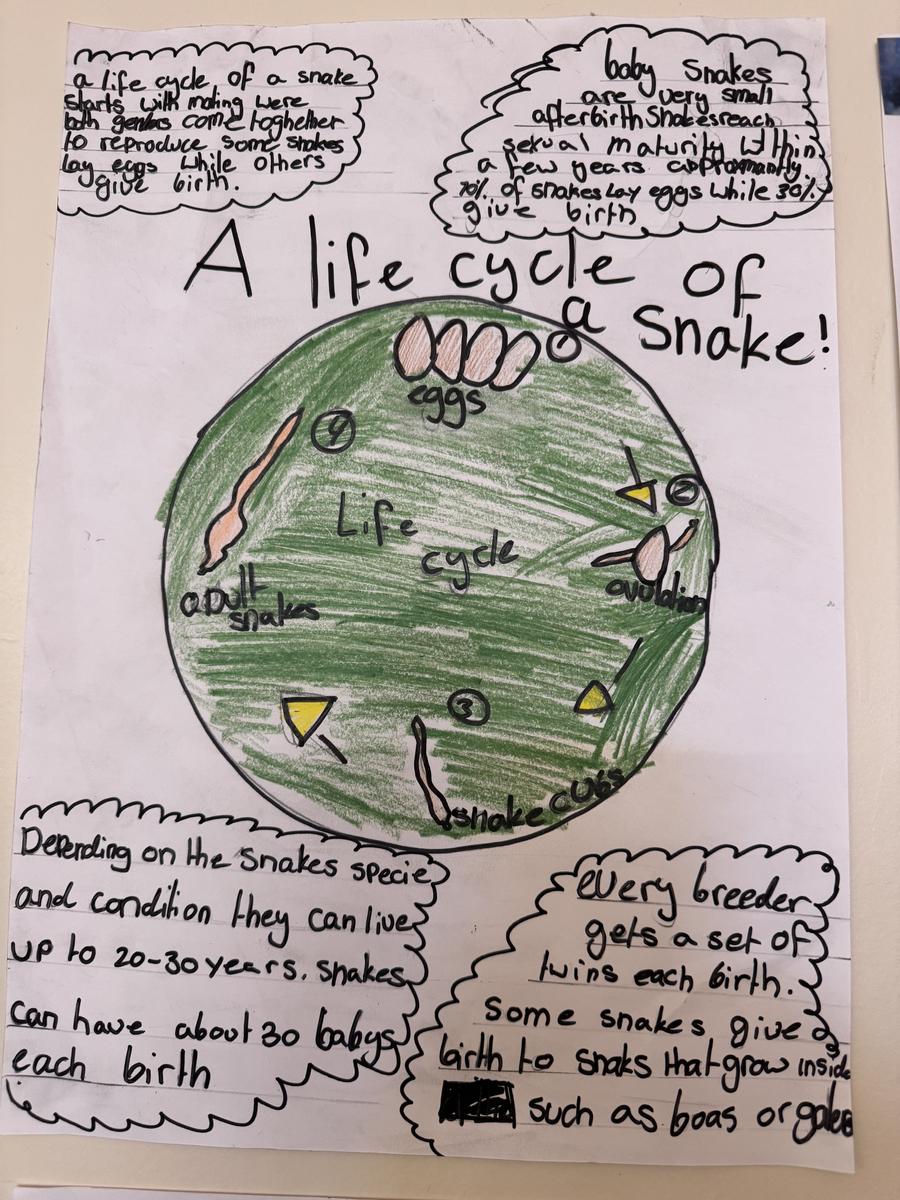 a life cycle of a snake
starts with mating were
both genders come toghether
to reproduce some snakes
lay eggs while others
give birth.
baby snakes
are very small
after birth Snakes reach
sexual maturity within
a few years approxmantly
70% of snakes lay eggs while 30%
give birth
A life cycle of
a snake!
eggs
4
2
Life
cycle
ovulation
adult
snakes
3
snake cubs
Depending on the snakes specie
and condition they can live
up to 20-30 years. snakes
can have about 30 babys
each birth
every breeder
gets a set of
twins each birth.
Some snakes give
birth to snaks that grow inside
such as boas or